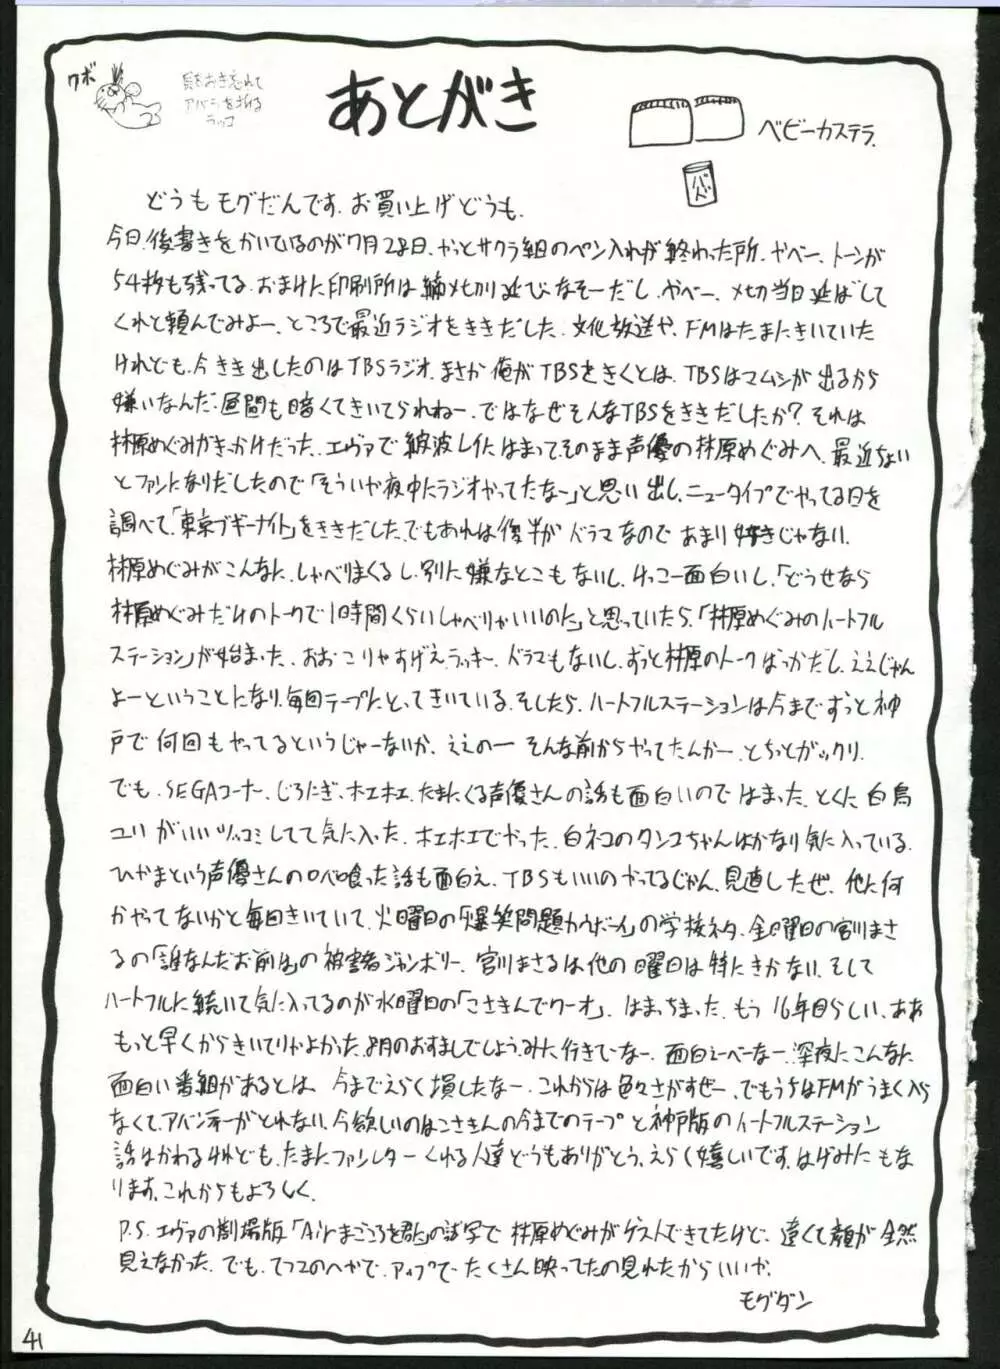 ワボ
貝をおき忘れて
アバラを折る
ラッコ
あとがき
ベビーカステラ.
どうもモグだんです. お買い上げどうも.
今日、後書きをかいているのが7月28日、やっとサクラ組のペン入れが終わった所. やべー、トーンが
54枚も残ってる. おまけに印刷所は〆切り延びなそーだし. やべー、〆切当日延ばして
くれと頼んでみよー. ところで最近ラジオをききだした. 文化放送や、FMはたまにきいていた
けれども、今きき出したのはTBSラジオ. まさか俺がTBSをきくとは. TBSはマムシが出るから
嫌いなんだ. 昼間も暗くてきいてられねー. ではなぜそんなTBSをききだしたか? それは
林原めぐみがきっかけだった. エヴァで綾波レイにはまって、そのまま声優の林原めぐみへ. 最近ちょい
とファンになりだしたので「そういや夜中にラジオやってたなー」と思い出し、ニュータイプでやってる日を
調べて、「東京ブギーナイト」をききだした. でもあれは後半がドラマなので あまり好きじゃない.
林原めぐみがこんなに、しゃべりまくるし、別に嫌なとこもないし、けっこー面白いし、「どうせなら
林原めぐみだけのトークで1時間くらいしゃべりゃいいのに」と思っていたら、「林原めぐみのハートフル
ステーション」が始まった. おおこりゃすげえラッキー. ドラマもないし、ずっと林原のトークばっかだし、ええじゃん
よーということになり、毎回テープにとってきいている. そしたら、ハートフルステーションは今までずっと神
戸で何回もやってるというじゃーないか. ええのー そんな前からやってたんかー. とちっとガックリ.
でも、SEGAコーナー、じろにぎ、ホエホエ、たまにくる声優さんの話も面白いのではまった. とくに白鳥
ユリがいいツッコミしてて気に入った. ホエホエでやった、白ネコのタンゴちゃんはかなり気に入っている.
ひやまという声優さんのロベ喰った話も面白え. TBSもいいのやってるじゃん. 見直したぜ. 他に何
かやってないかと毎日きいていて、火曜日の「爆笑問題カウボーイ」の学校ネタ、金曜日の宮川まさ
るの「誰なんだお前は」の被害者ジャンボリー. 宮川まさるは他の曜日は特にきかない. そして
ハートフルに続いて気に入ってるのが水曜日の「こさきんでワーオ」. はまっちまった. もう16年目らしい. ああ
もっと早くからきいてりゃよかった. 8月のおすましでしょう、みに行きてーなー. 面白えーべーなー. 深夜にこんなに
面白い番組があるとは. 今までえらく損したなー. これからは色々さがすぜー. でもうちはFMがうまく入ら
なくて、アバンギーがとれない. 今欲しいのはこさきんの今までのテープと神戸版のハートフルステーション
話はかわるけれども、たまにファンレターくれる人達どうもありがとう. えらく嬉しいです. はげみにもな
ります. これからもよろしく.
P.S. エヴァの劇場版「Air まごころを君に」の試写で林原めぐみがゲストできてたけど、遠くて顔が全然
見えなかった. でも、てつこのへやで、アップでたくさん映ってたの見れたからいいか.
モグダン
41